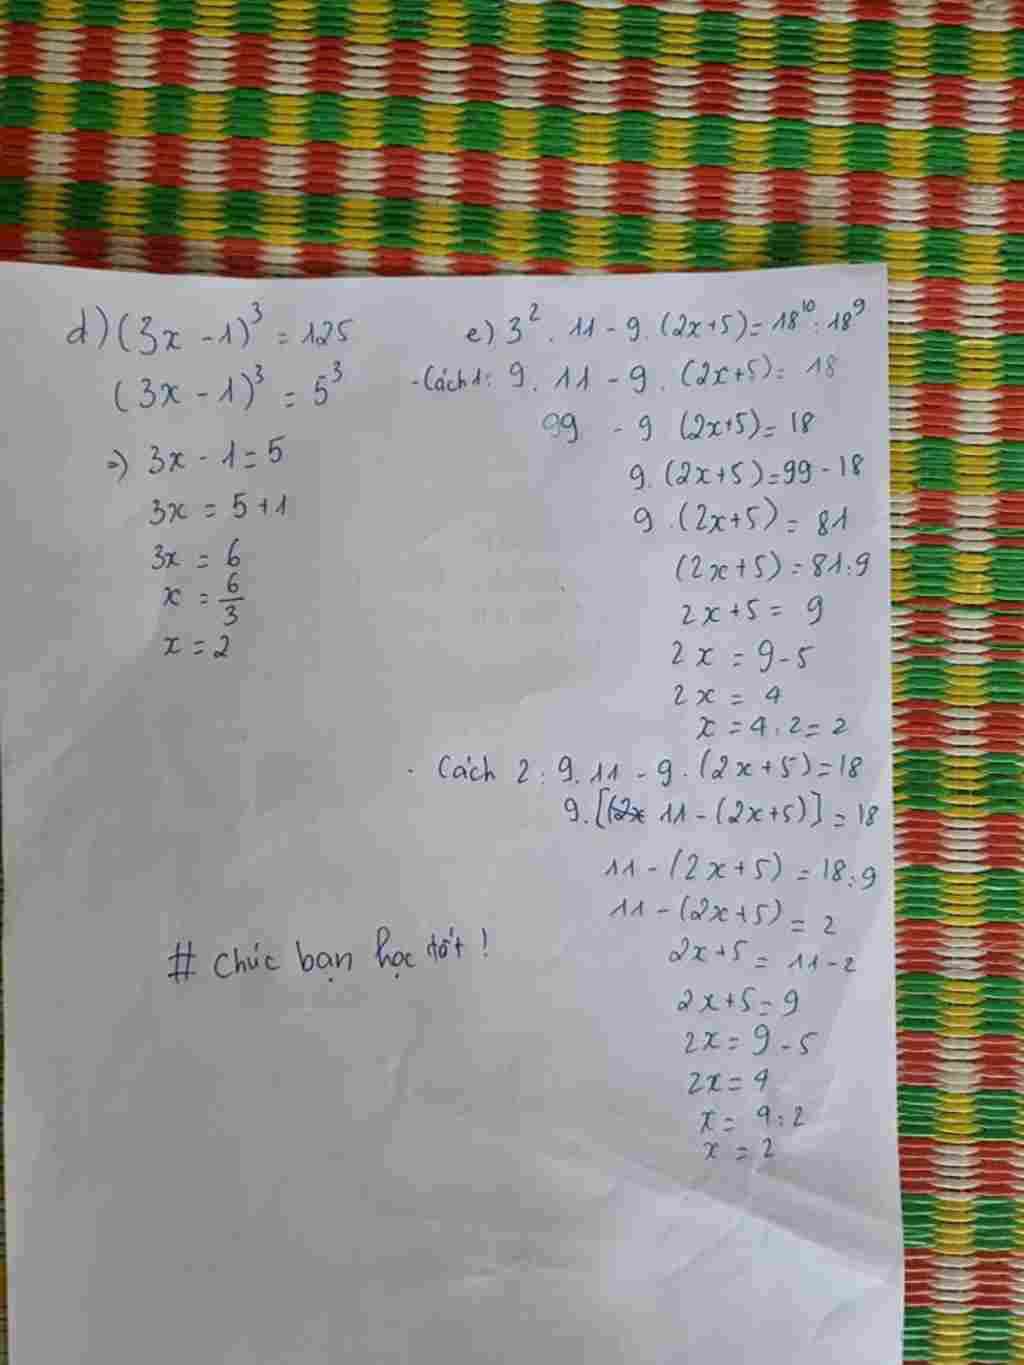 d) (3x - 1)³ = 125
(3x - 1)³ = 5³
=) 3x - 1 = 5
3x = 5 + 1
3x = 6
x = 6/3
x = 2
# Chúc bạn học tốt !
e) 3² . 11 - 9 . (2x+5) = 18¹⁰ : 18⁹
- Cách 1: 9 . 11 - 9 . (2x+5) = 18
99 - 9 (2x+5) = 18
9 . (2x+5) = 99 - 18
9 . (2x+5) = 81
(2x+5) = 81 : 9
2x + 5 = 9
2x = 9 - 5
2x = 4
x = 4 : 2 = 2
- Cách 2 : 9 . 11 - 9 . (2x+5) = 18
9 . [11 - (2x+5)] = 18
11 - (2x+5) = 18 : 9
11 - (2x+5) = 2
2x+5 = 11 - 2
2x+5 = 9
2x = 9 - 5
2x = 4
x = 4 : 2
x = 2